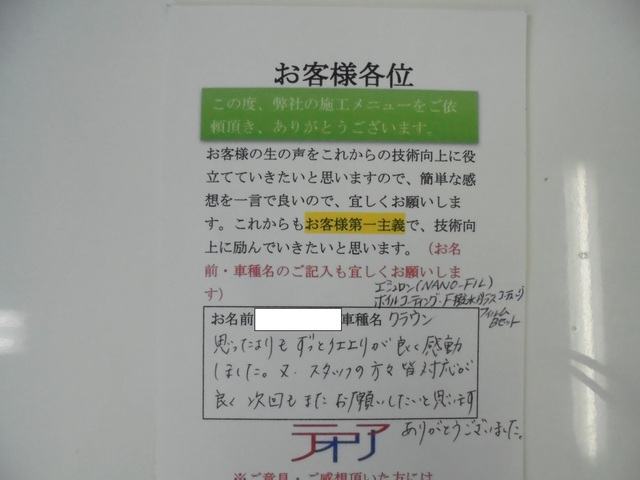 お客様各位
この度、弊社の施工メニューをご依
頼頂き、ありがとうございます。
お客様の生の声をこれからの技術向上に役
立てていきたいと思いますので、簡単な感
想を一言で良いので、宜しくお願いしま
す。これからもお客様第一主義で、技術向
上に励んでいきたいと思います。(お名
前・車種名のご記入も宜しくお願いしま
す)
エシュロン(NANO-FIL)
ホイルコーティング・F撥水ガラスコーティング
フィルム
Bセット
お名前 車種名 クラウン
思ったよりもずっと仕上りが良く感動
しました。又、スタッフの方々皆対応が
良く次回もまたお願いしたいと思います
ありがとうございました。
テオリア
※ご意見・ご感想頂いた方には